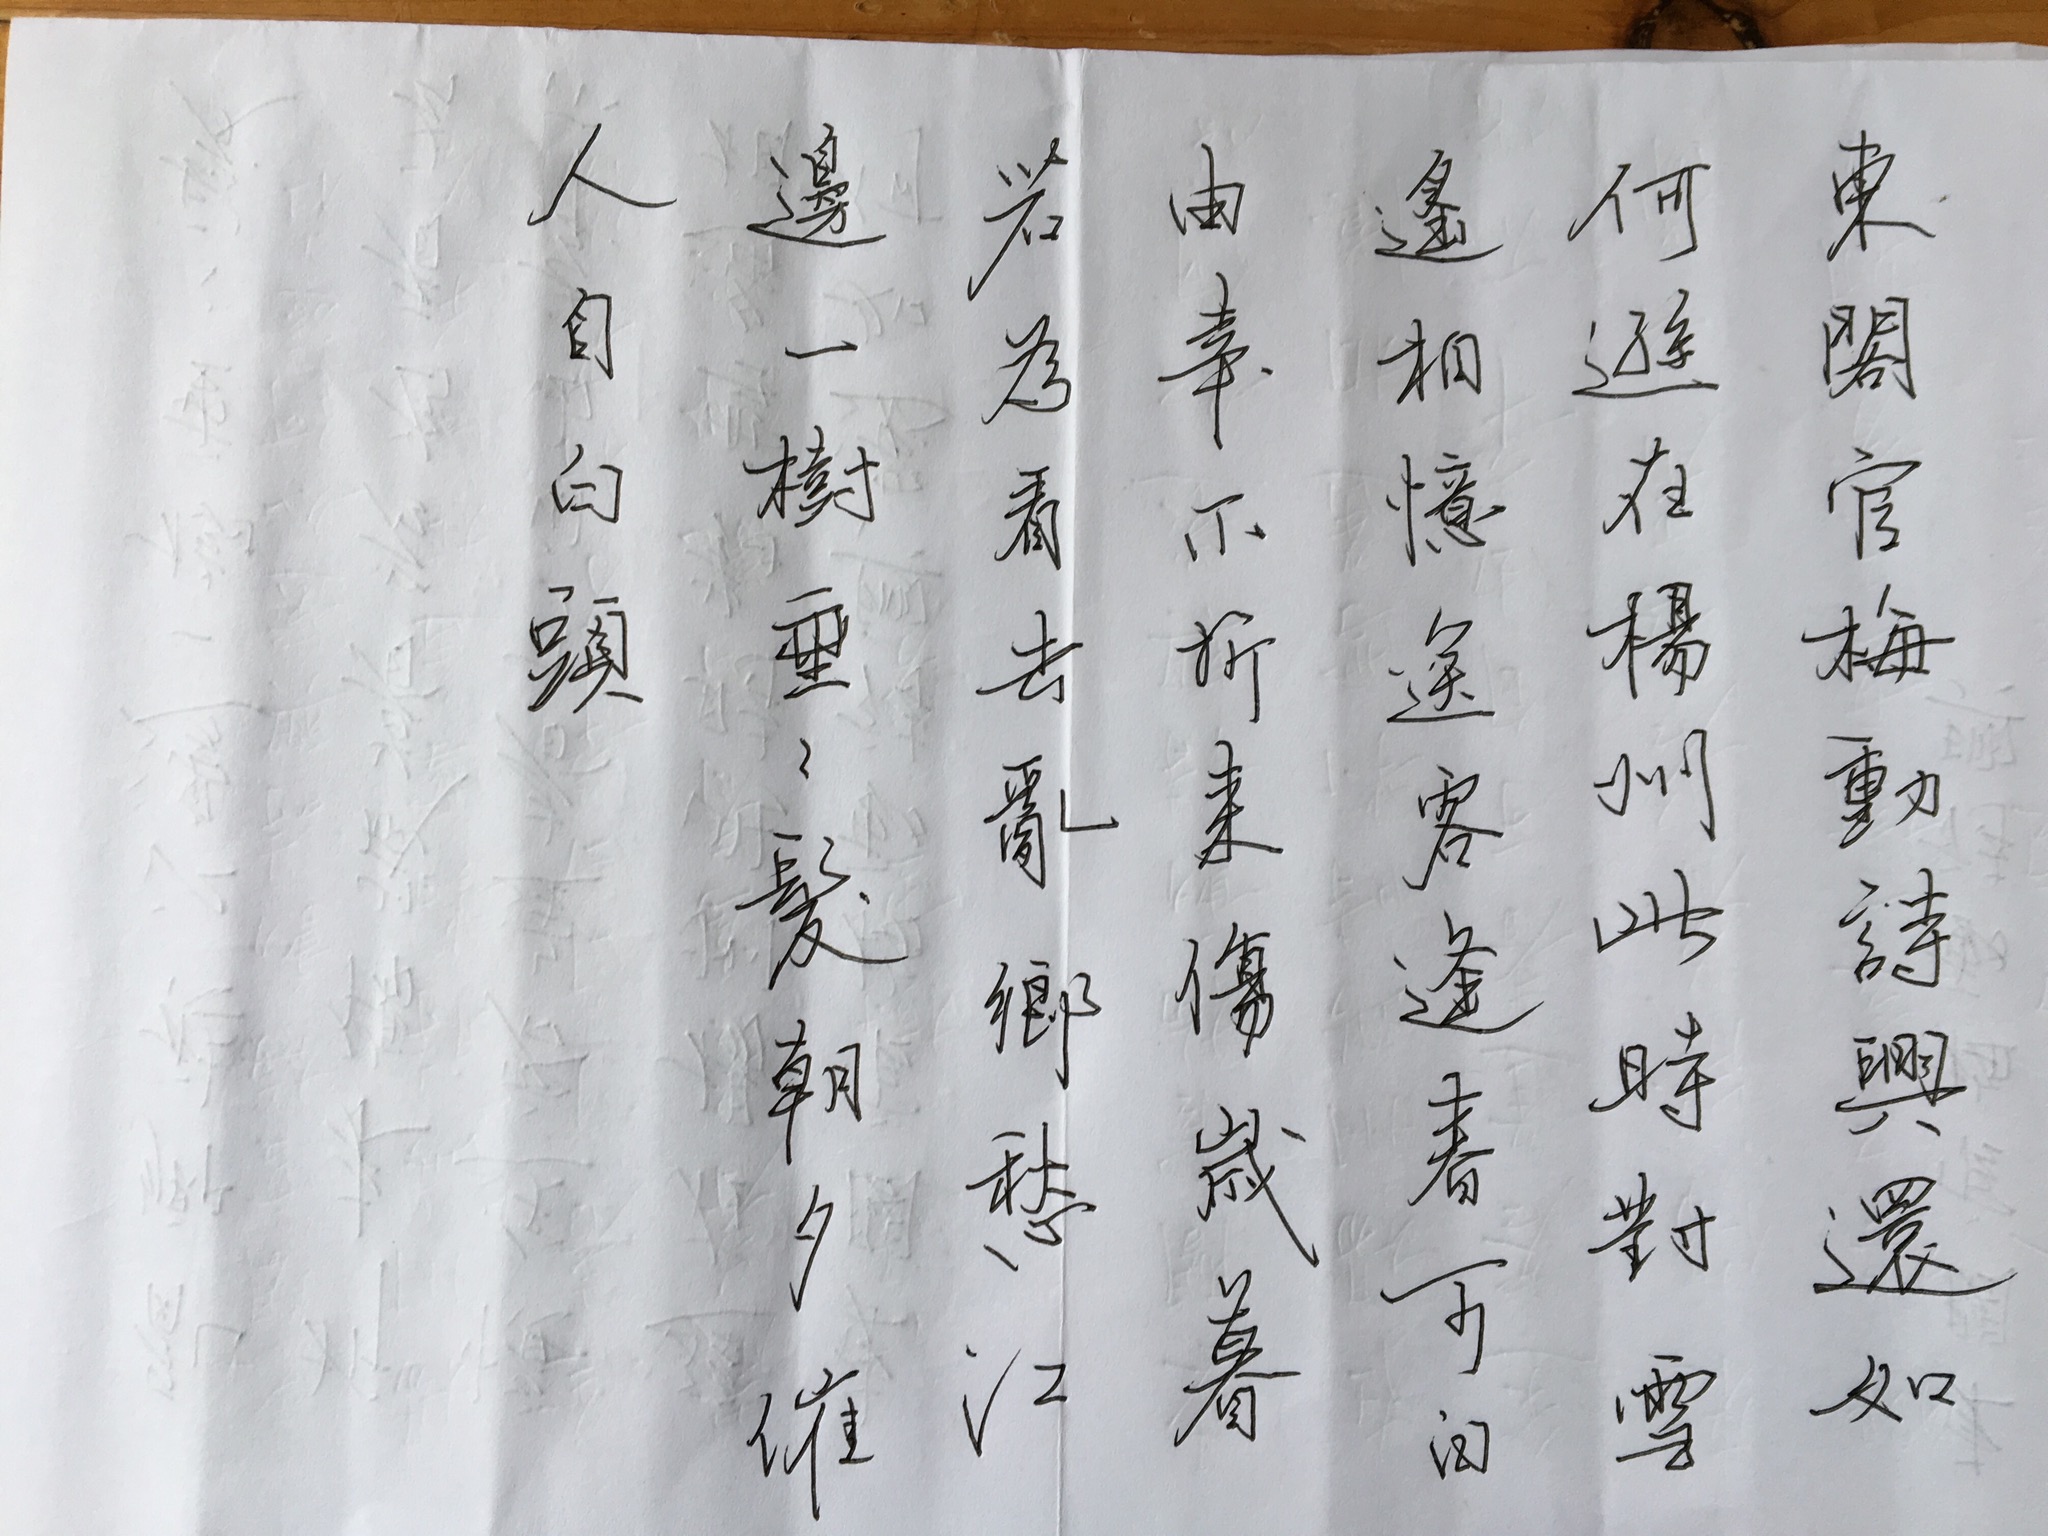 東閣官梅動詩興還如
何遜在楊州此時對雪
遙相憶送客逢春可自
由幸不折来傷歲暮
若為看去亂鄉愁江
邊一樹垂〻髮朝夕催
人自白頭